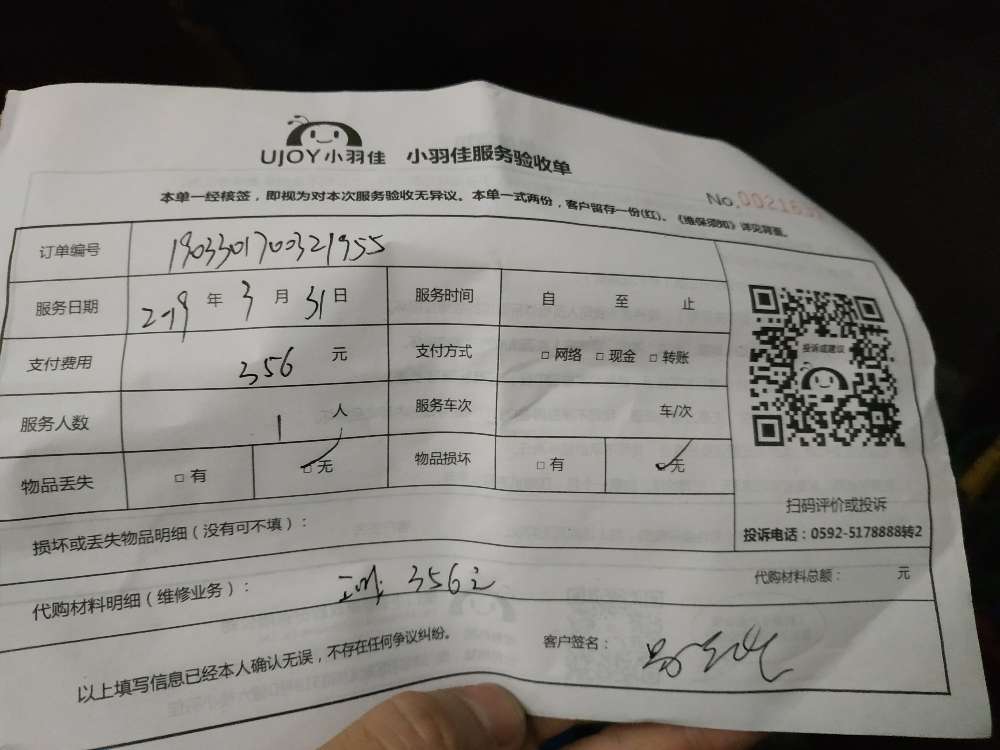 UJOY小羽佳 小羽佳服务验收单
No.00216
本单一经核签，即视为对本次服务验收无异议。本单一式两份，客户留存一份(红)。《维保须知》详见背面。
订单编号 1903301700321955
服务日期 2019 年 3 月 31 日 服务时间 自 至 止
支付费用 356 元 支付方式 □ 网络 □ 现金 □ 转账
服务人数 1 人 服务车次 车/次
物品丢失 □ 有 □ 无 物品损坏 □ 有 □ 无
投诉或建议
扫码评价或投诉
投诉电话：0592-5178888转2
损坏或丢失物品明细（没有可不填）：
代购材料明细（维修业务）： 356元 代购材料总额： 元
以上填写信息已经本人确认无误，不存在任何争议纠纷。 客户签名：